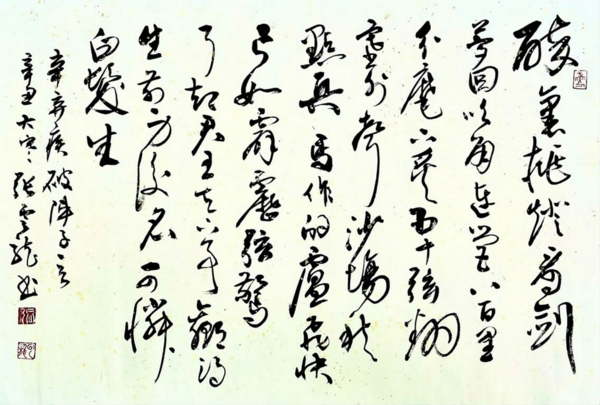 醉裏挑燈看剑
夢回吹角連營八百里
分麾下炙五十弦翻
塞外聲沙場秋
點兵馬作的盧飛快
弓如霹靂弦驚
了却君王天下事贏得
生前身後名可憐
白髮生
辛弃疾破陣子词
辛丑大寒張雲龍书